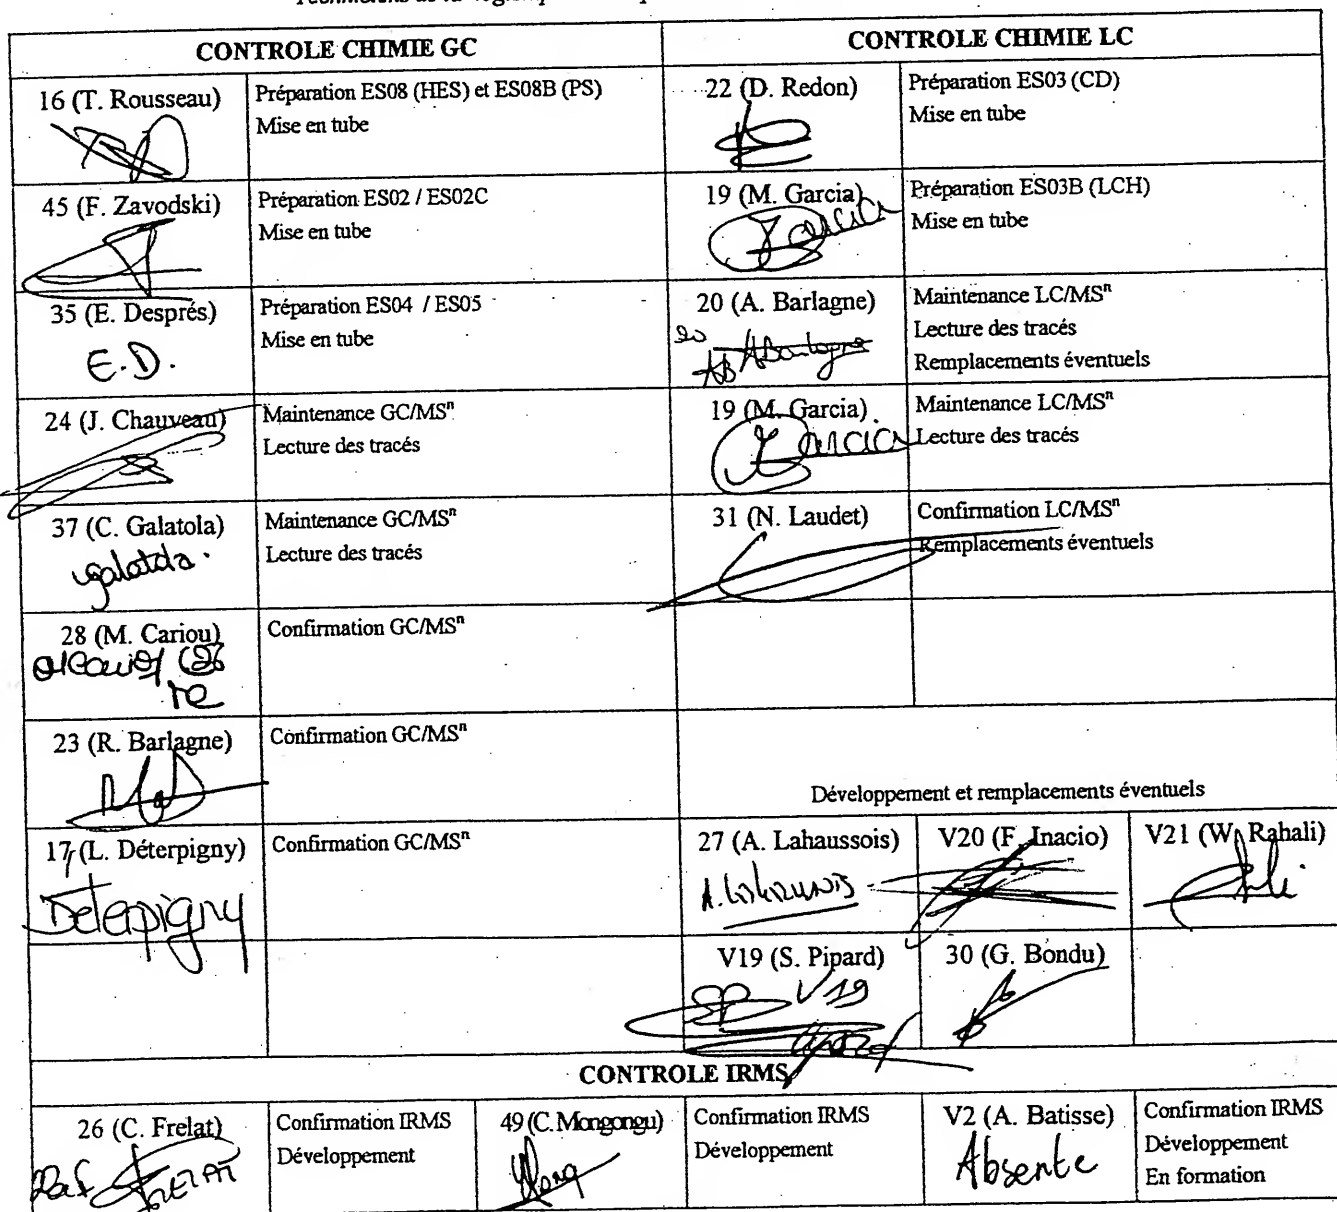 CONTROLE CHIMIE GC
CONTROLE CHIMIE LC
16 (T. Rousseau)
Préparation ES08 (HES) et ES08B (PS)
Mise en tube
22 (D. Redon)
Préparation ES03 (CD)
Mise en tube
45 (F. Zavodski)
Préparation ES02 / ES02C
Mise en tube
19 (M. Garcia)
Garcia
Préparation ES03B (LCH)
Mise en tube
35 (E. Després)
E.D.
Préparation ES04 / ES05
Mise en tube
20 (A. Barlagne)
20
AB ABarlagne
Maintenance LC/MSⁿ
Lecture des tracés
Remplacements éventuels
24 (J. Chauveau)
Maintenance GC/MSⁿ
Lecture des tracés
19 (M. Garcia)
Garcia
Maintenance LC/MSⁿ
Lecture des tracés
37 (C. Galatola)
galatola.
Maintenance GC/MSⁿ
Lecture des tracés
31 (N. Laudet)
Confirmation LC/MSⁿ
Remplacements éventuels
28 (M. Cariou)
Confirmation GC/MSⁿ
23 (R. Barlagne)
Confirmation GC/MSⁿ
Développement et remplacements éventuels
17 (L. Déterpigny)
Deterpigny
Confirmation GC/MSⁿ
27 (A. Lahaussois)
A. Lahaussois
V20 (F. Inacio)
V21 (W. Rahali)
V19 (S. Pipard)
SP V19
30 (G. Bondu)
CONTROLE IRMS
26 (C. Frelat)
FRELAT
Confirmation IRMS
Développement
49 (C. Mongongu)
Mong
Confirmation IRMS
Développement
V2 (A. Batisse)
Absente
Confirmation IRMS
Développement
En formation